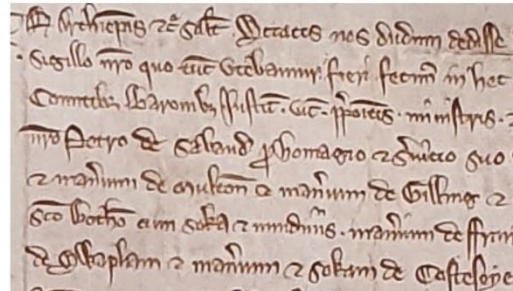 R Archiep̄is ⁊c̄ sal̄t. Sciatis nos dudum dedisse
sigillo nr̄o quo tūc utebamur fieri fecim̄ in hec
Comitibȝ Baronibȝ Justic̄. vic̄. p̄poītis. ministris. ⁊
nr̄o Petro de Sabaud ꝓ homagio ⁊ s̄uicio suo
⁊ man̄ium de Multon̄ ⁊ man̄ium de Gilling ⁊
Sc̄o Botho cum soka ⁊ nundinis. man̄ium de
de Swapham ⁊ man̄ium ⁊ sokam de Costeseye